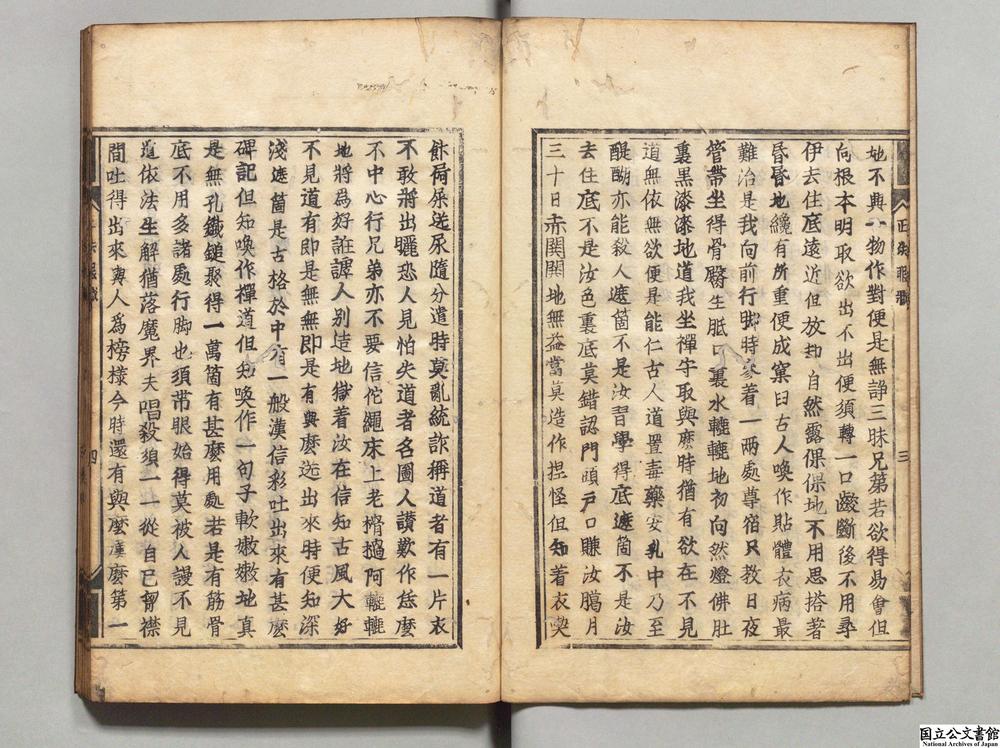 地不與一物作對便是無諍三昧兄第若欲得易會但
向根本明取欲出不出便須轉一口齩斷後不用尋
伊去住底遠近但放却自然露倮倮地不用思搭著
昏昏地纔有所重便成窠臼古人喚作貼體衣病最
難治是我向前行脚時參着一兩處尊宿只教日夜
管帶坐得骨臀生胝口裏水轆轆地初向然燈佛肚
裏黑漆漆地道我坐禪守取與麽時猶有欲在不見
道無依無欲便是能仁古人道置毒藥安乳中乃至
醍醐亦能殺人遮箇不是汝習學得底遮箇不是汝
去住底不是汝色裏底莫錯認門頭戶口賺汝臈月
三十日赤閧閧地無益當莫造作揑怪但知着衣喫
飰屙屎送尿隨分遣時莫亂統詐稱道者有一片衣
不敢將出曬恐人見怕失道者名圖人讃歎作恁麽
不中心行兄弟亦不要信佗繩床上老榾檛阿轆轆
地將爲好誑譚人别造地獄着汝在信知古風大好
不見道有即是無無即是有與麽迯出來時便知深
淺遮箇是古格於中有一般漢信彩吐出來有甚麽
碑記但知喚作禪道但知喚作一句子軟嫩嫩地真
是無孔鐵鎚聚得一萬箇有甚麽用處若是有筋骨
底不用多諸處行脚也須帶眼始得莫被人謾不見
道依法生解猶落魔界夫唱敎須一一從自己胷襟
間吐得出來與人爲榜様今時還有與麽漢麽第一
正法眼藏
三
四
国立公文書館
National Archives of Japan